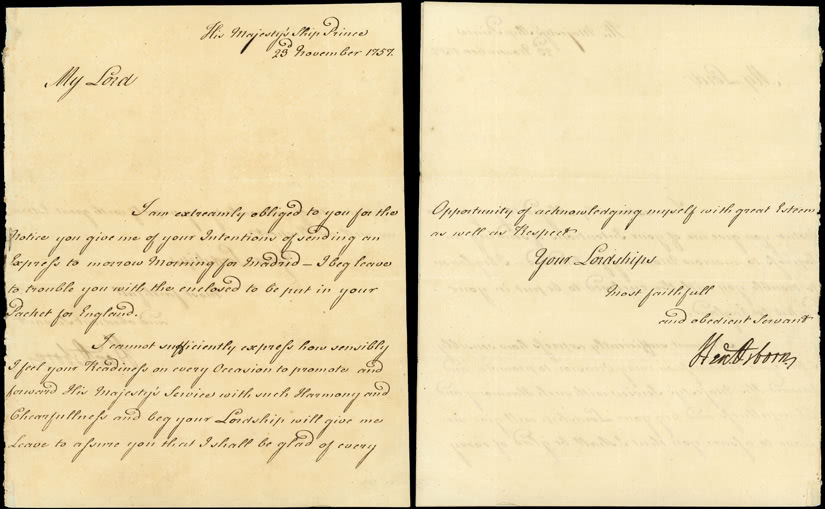 His Majesty's Ship Prince
23d November 1757.
My Lord
I am extreamly obliged to you for the
Notice you give me of your Intentions of sending an
Express to morrow Morning for Madrid – I beg leave
to trouble you with the enclosed to be put in your
Packet for England.
I cannot sufficiently express how sensibly
I feel your Readiness on every Occasion to promote and
forward His Majesty's Service with such Harmony and
Chearfullness and beg your Lordship will give me
Leave to assure you that I shall be glad of every
Opportunity of acknowledging myself with great Esteem
as well as Respect
Your Lordships
Most faithfull
and obedient Servant
Hen Osborn